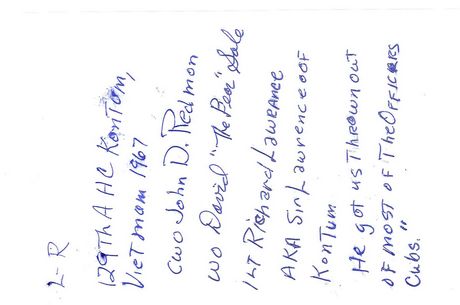 L-R
129th AHC KonTum,
VieTnam 1967
CWO John D. Redmon
WO David "The Bear" Sale
1LT Richard Lawrance
AKA Sir Lawrence OF
KonTum
He got us Thrown out
of most of The OFFICERS
Cubs."